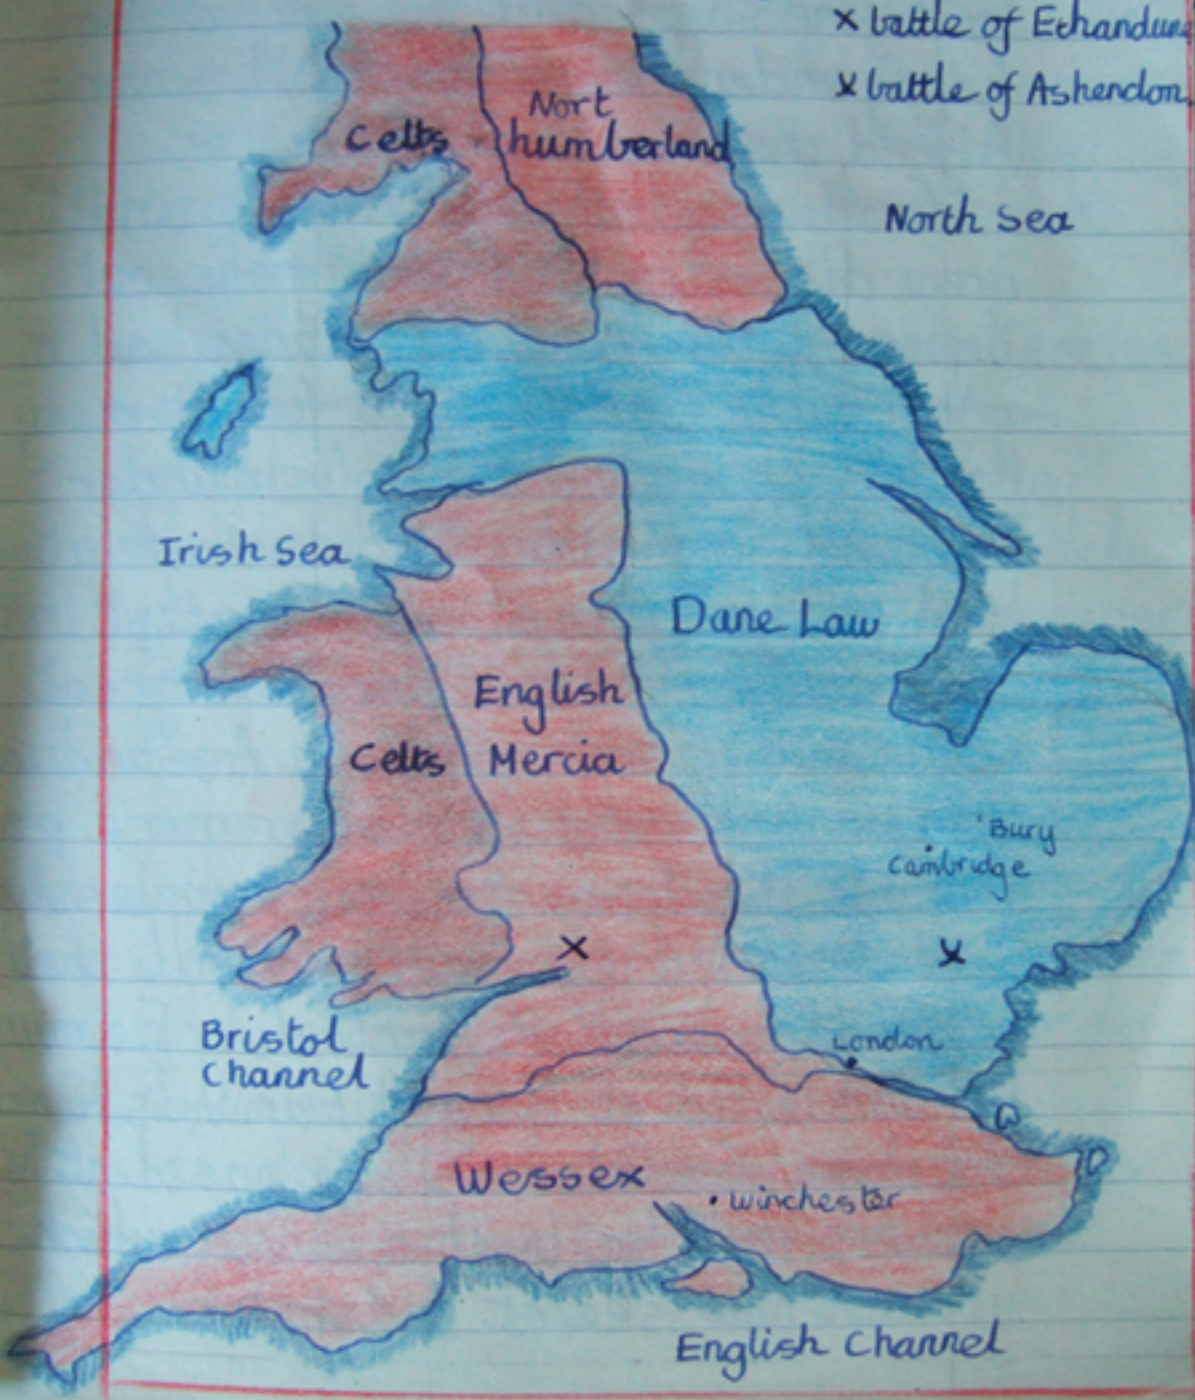 x battle of Ethandune
x battle of Ashendon
Nort
humberland
Celts
North Sea
Irish Sea
Dane Law
English
Mercia
Celts
Bury
Cambridge
x
x
Bristol
Channel
London
Wessex
Winchester
English Channel